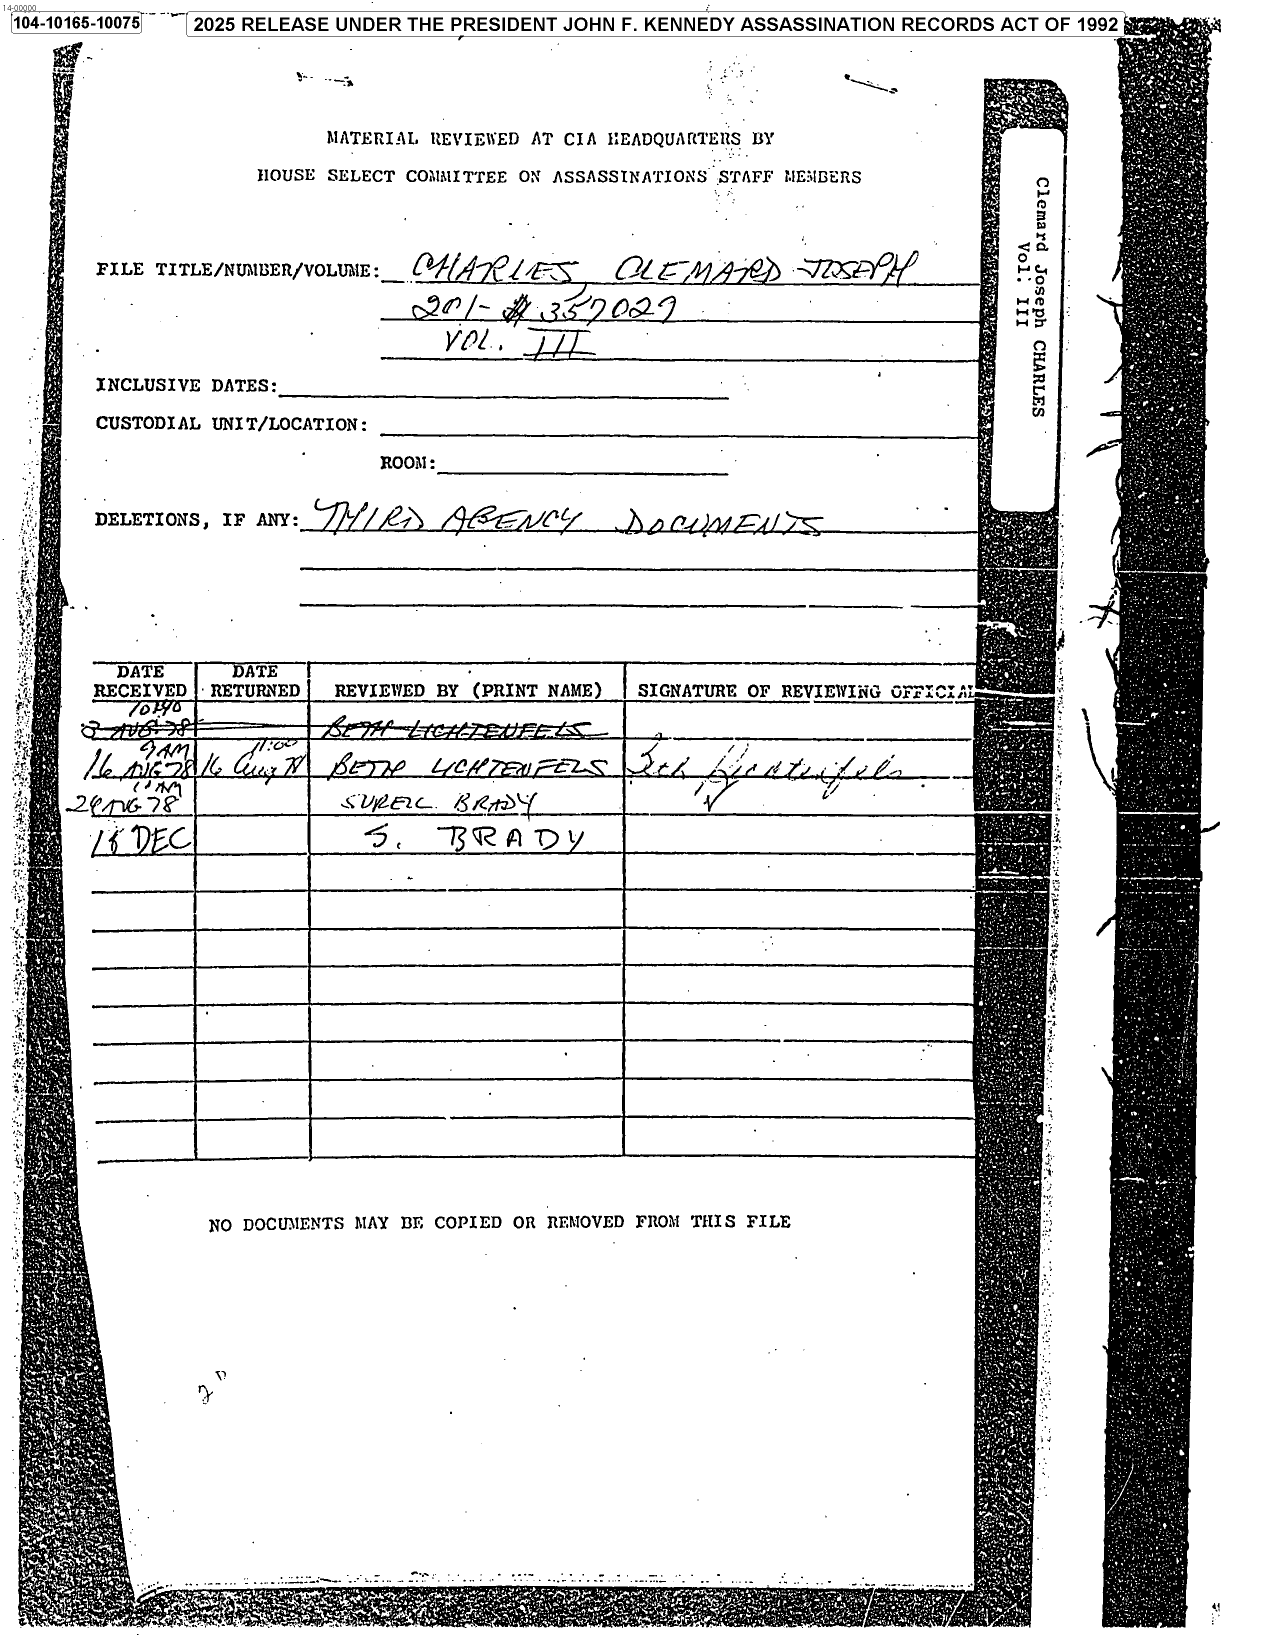 14-00000
104-10165-10075
2025 RELEASE UNDER THE PRESIDENT JOHN F. KENNEDY ASSASSINATION RECORDS ACT OF 1992
MATERIAL REVIEWED AT CIA HEADQUARTERS BY
HOUSE SELECT COMMITTEE ON ASSASSINATIONS STAFF MEMBERS
Clemard Joseph CHARLES
Vol: III
FILE TITLE/NUMBER/VOLUME: CHARLES, CLEMARD JOSEPH
201- 357029
VOL. III
INCLUSIVE DATES:
CUSTODIAL UNIT/LOCATION:
ROOM:
DELETIONS, IF ANY: THIRD AGENCY DOCUMENTS
DATE RECEIVED DATE RETURNED REVIEWED BY (PRINT NAME) SIGNATURE OF REVIEWING OFFICIAL
10:40
AUG 78 BETH LICHTENFELS
9 AM 11:00
16 AUG 78 16 Aug 78 BETH LICHTENFELS Beth Lichtenfels
AUG 78 BRADY
18 DEC S. BRADY
NO DOCUMENTS MAY BE COPIED OR REMOVED FROM THIS FILE